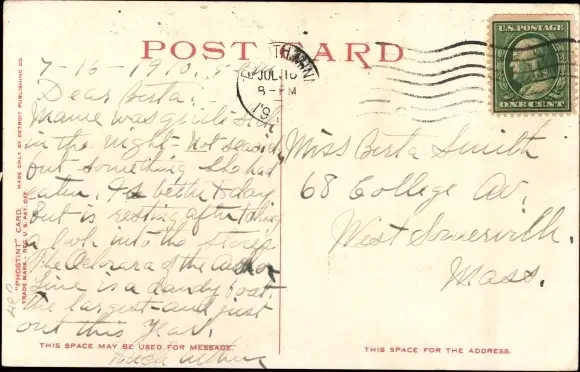 POST CARD
U.S. POSTAGE
ONE CENT
JUL 16
8-PM
7-16-1910.
Dear Berta:
Mame was quite sick
in the night - Not seasick
but something she had
eaten. Is better to day
but is resting after taking
a look into the stores
The Octorara of the Anchor
Line is a dandy boat,
the largest - and just
out this year.
Miss Berta Smith
68 College Av,
West Somerville.
Mass.
"PHOSTINT" CARD. MADE ONLY BY DETROIT PUBLISHING CO.
TRADE MARK.- REG. U. S. PAT. OFF.
THIS SPACE MAY BE USED FOR MESSAGE.
THIS SPACE FOR THE ADDRESS.